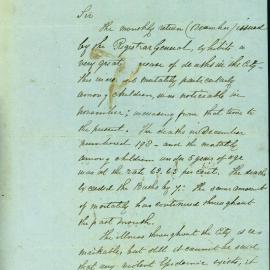 Sir
The monthly return (December) issued
by the Registrar General, exhibit a
very great excess of deaths in the City
this increased mortality particularly
among children, was noticeable in
November; increasing from that time to
the present. The deaths in December
numbered 198 and the mortality
among children under 5 years of age
was at the rate 63.63 per cent. The deaths
exceeded the Births by 7: The same amount
of mortality has continued throughout
the past month.
The illness throughout the City is re-
markable, but still it cannot be said
that any violent Epidemic exists, it